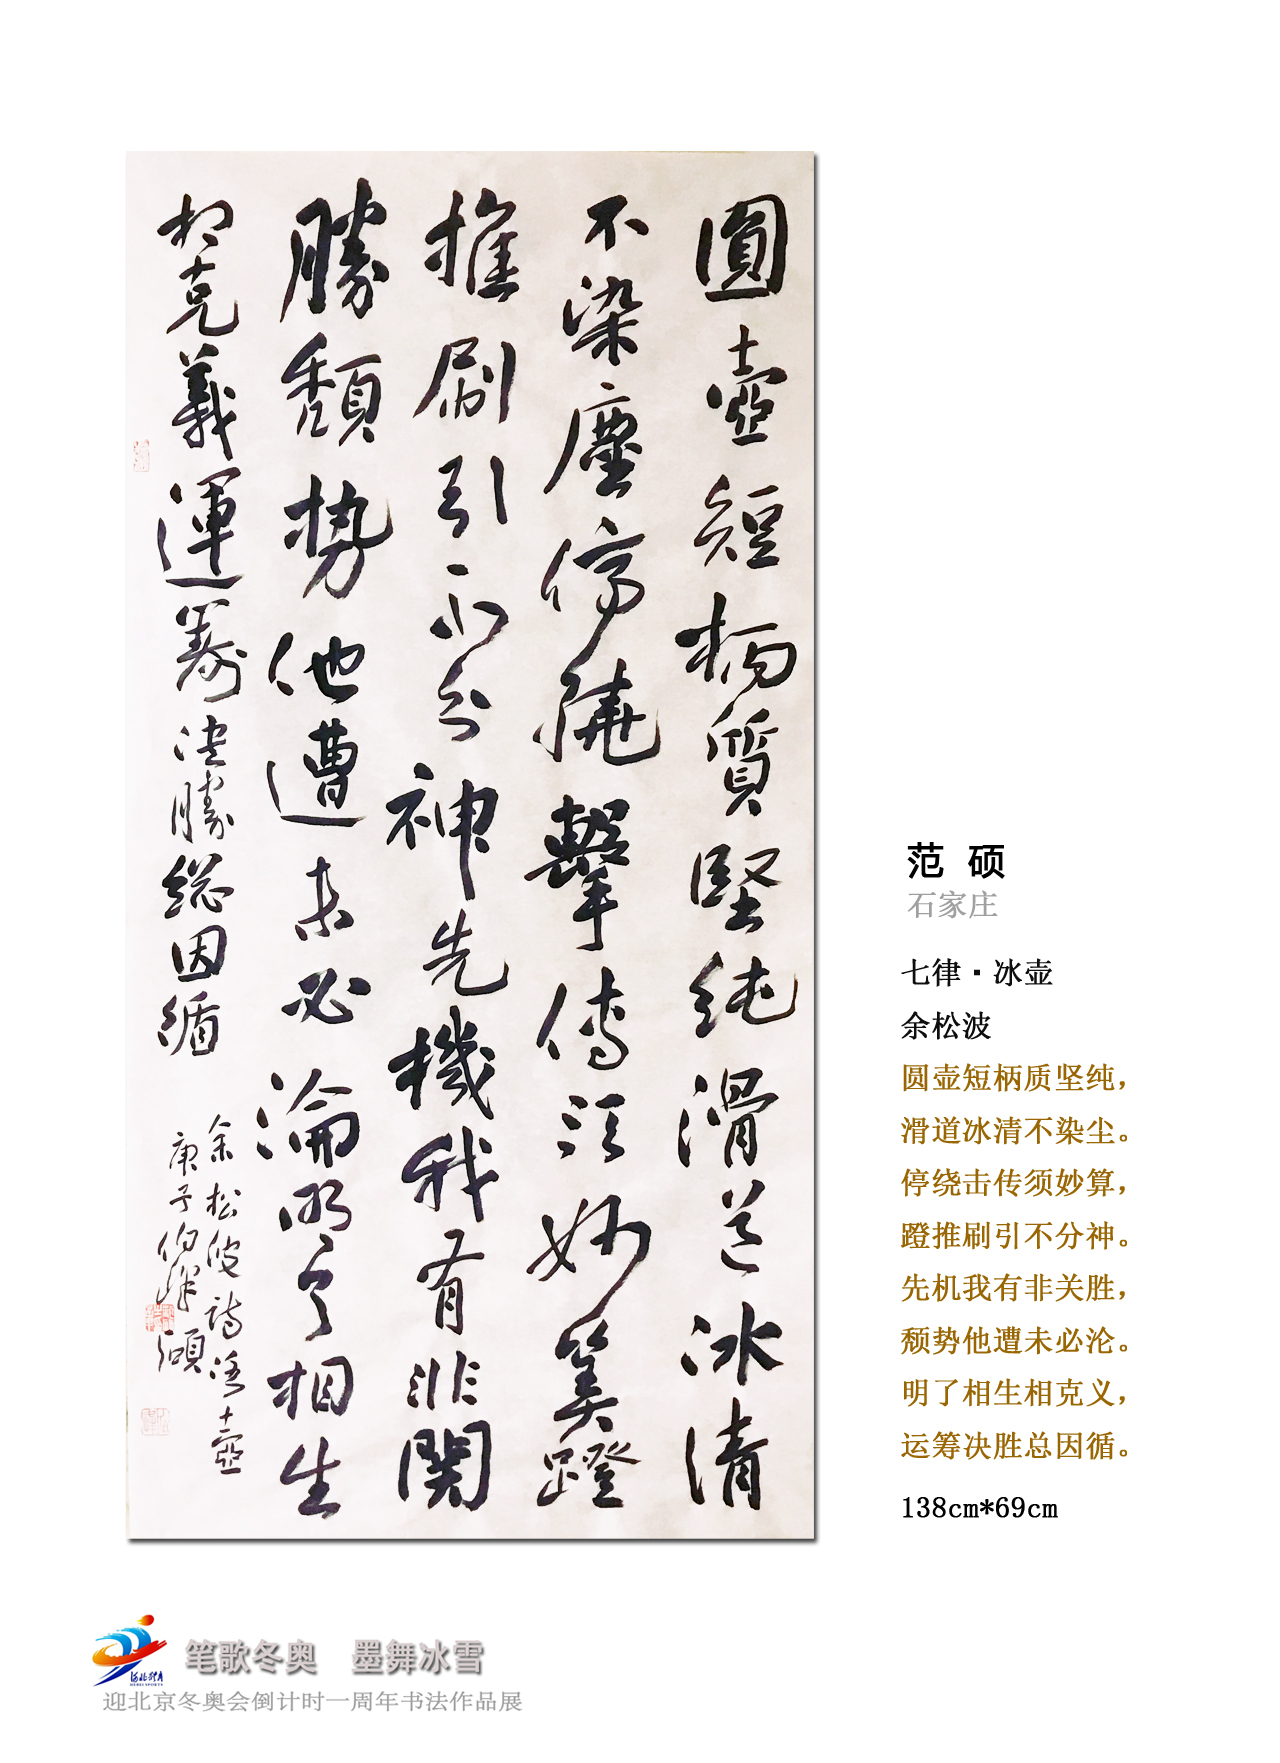 圓壺短柄質堅純滑道冰清
不染塵停繞擊傳須妙算蹬
推刷引不分神先機我有非関
勝頹势他遭未必淪明了相生
相克義運籌决勝総因循
余松波诗冰壺
庚子
范 硕
石家庄
七律·冰壶
余松波
圆壶短柄质坚纯，
滑道冰清不染尘。
停绕击传须妙算，
蹬推刷引不分神。
先机我有非关胜，
颓势他遭未必沦。
明了相生相克义，
运筹决胜总因循。
138cm*69cm
笔歌冬奥 墨舞冰雪
河北體育
HEBEI SPORTS
迎北京冬奥会倒计时一周年书法作品展